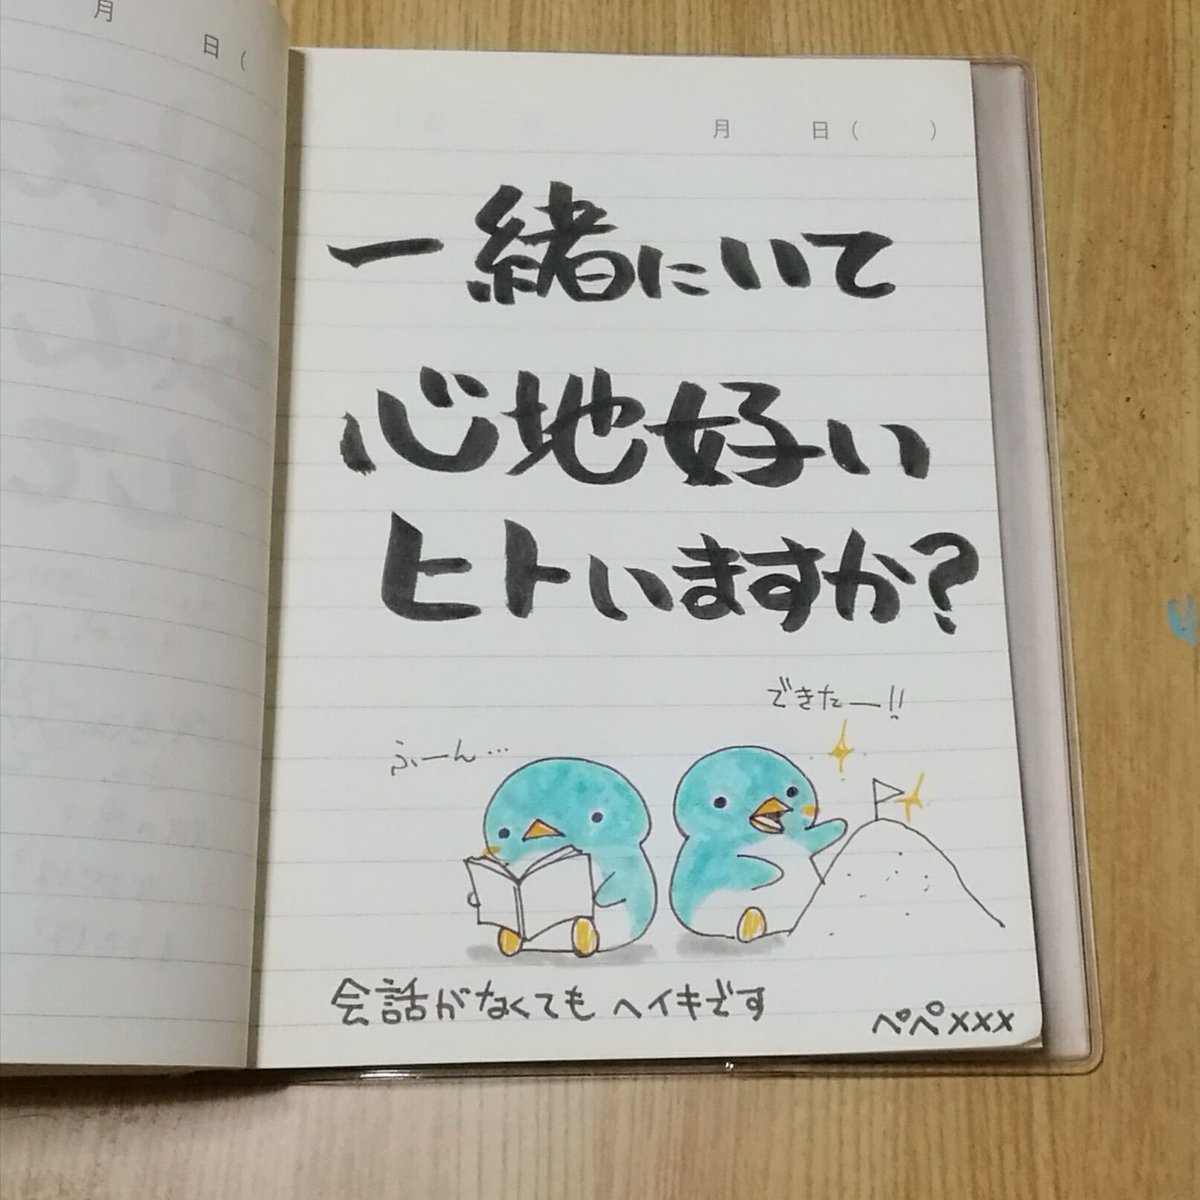 月
日(
月 日( )
一緒にいて
心地好い
ヒトいますか?
できたー!!
ふーん…
会話がなくても ヘイキです
ペペxxx